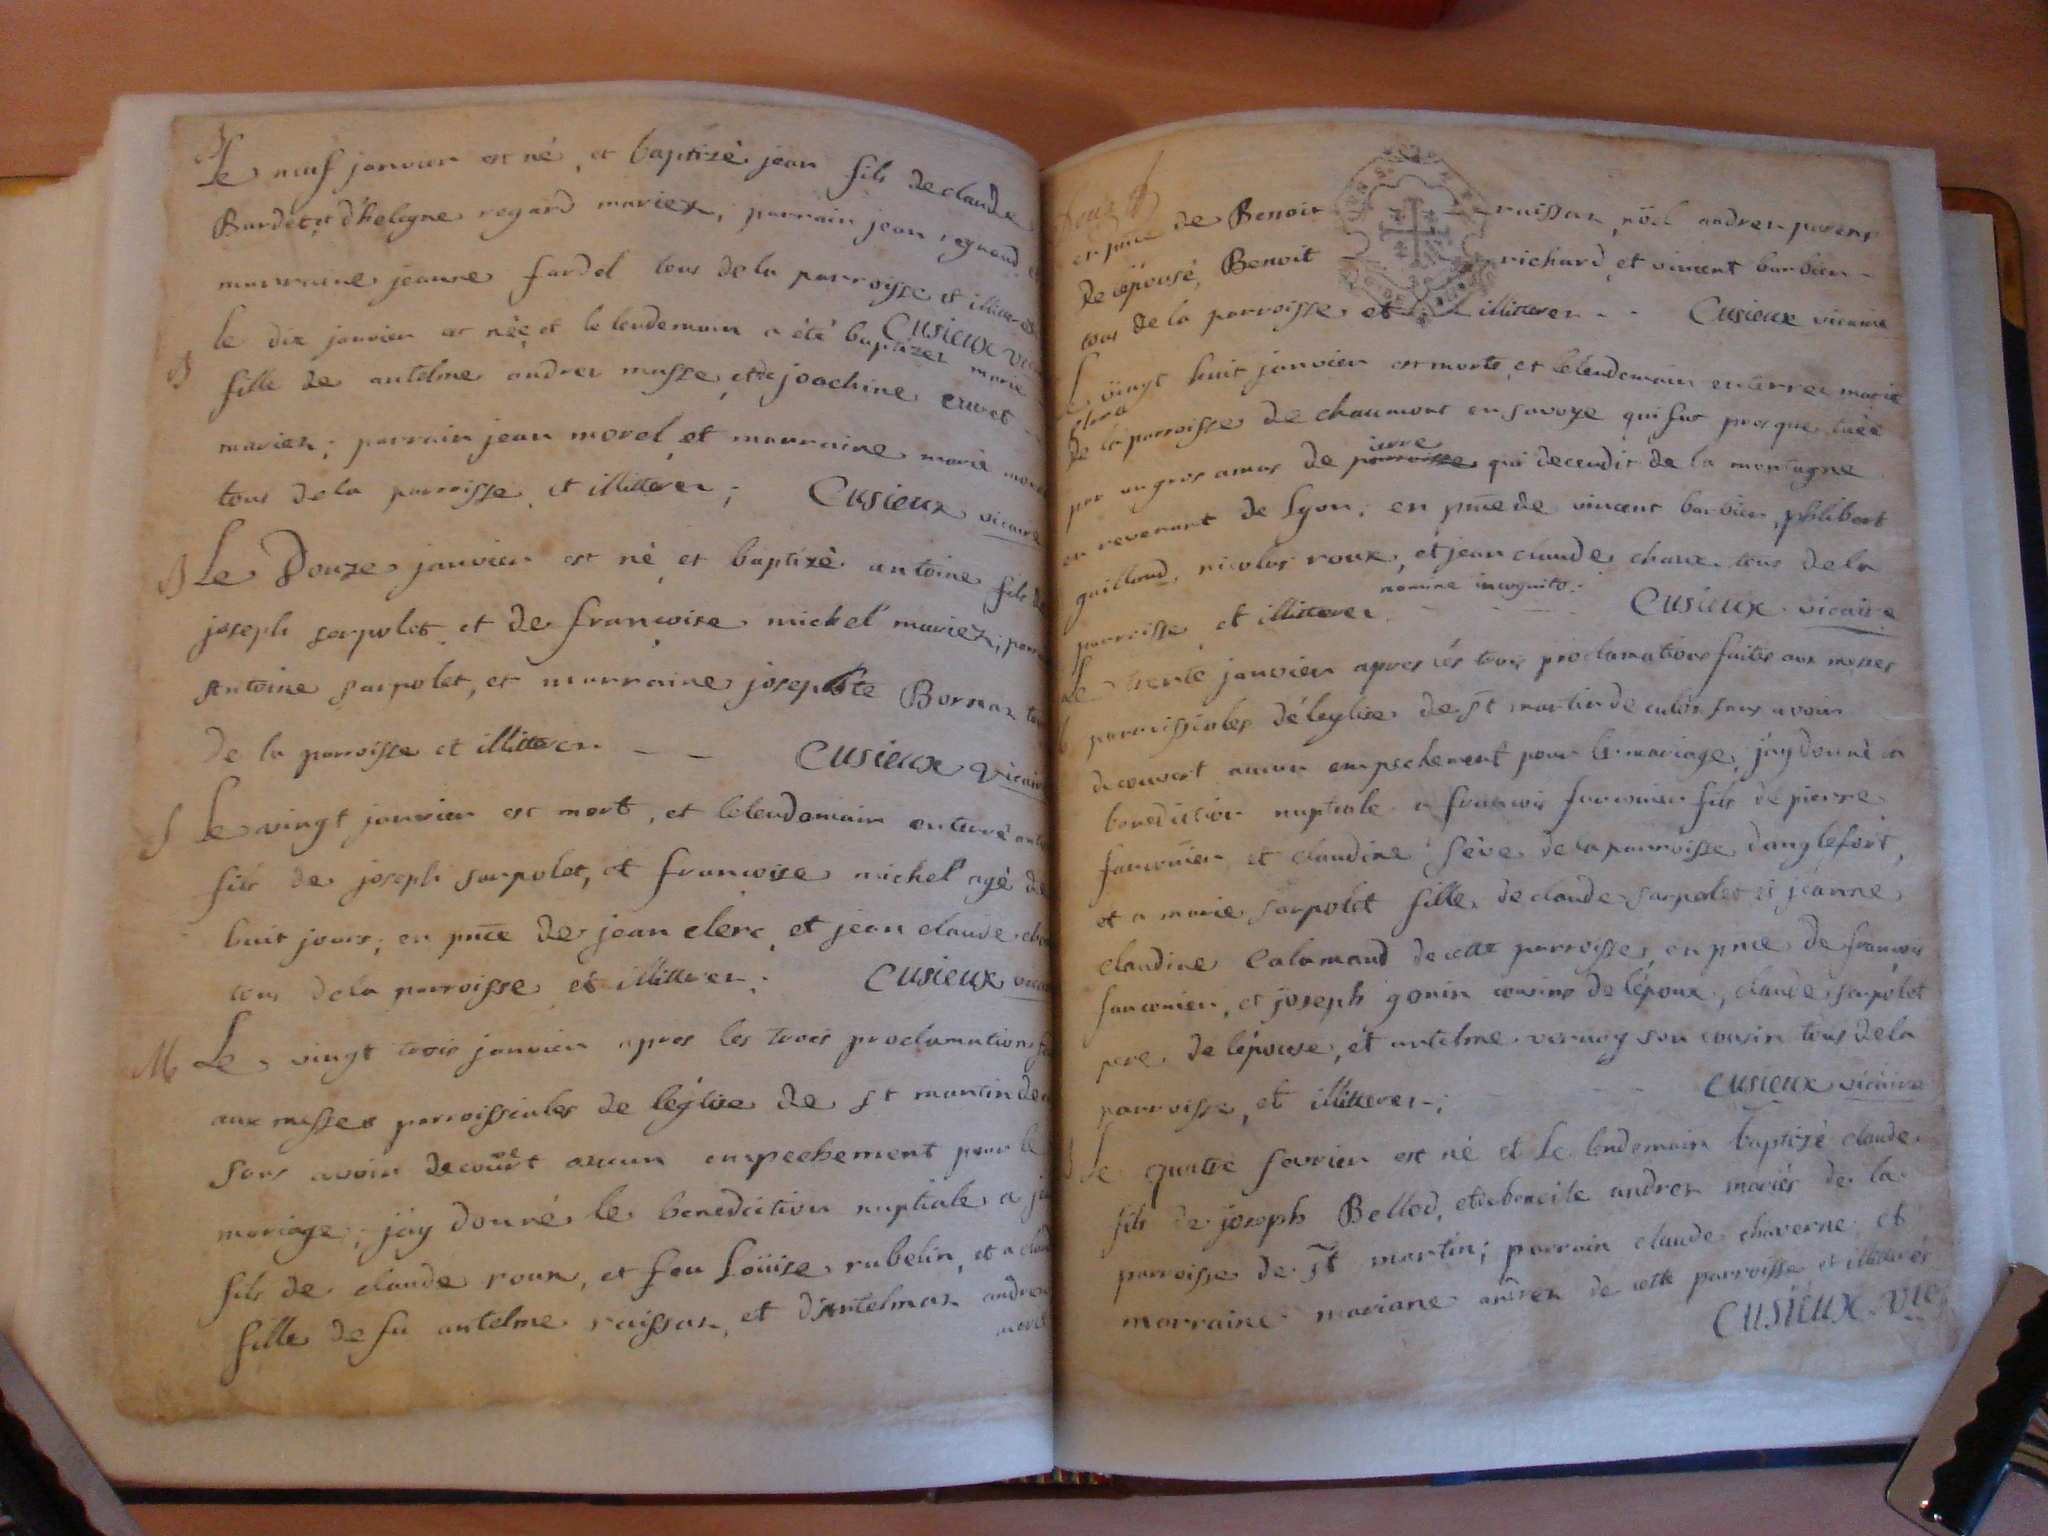 B
Le neuf janvier est né, et baptizé jean fils de claude
Bardet, et d'heleyne regard mariez; parrain jean regnaud
marraine jeanne fardel tous de la parroisse et illitterez
Cusieux
B
le dix janvier est née et le lendemain a été baptizez marie
fille de antelme andrez musse, et de joachine cuvet
mariez; parrain jean morel, et marraine marie
tous de la parroisse, et illitterez; Cusieux vicaire
B Le Douze janvier est né, et baptizé antoine fils de
joseph sarpolet et de françoise michel mariez;
Antoine sarpolet, et marraine josephte Bornaz
de la parroisse et illitterez -- Cusieux vicaire
S Le vingt janvier est mort, et lelendemain enterré
fils de joseph sarpolet, et francoise michel agé de
huit jours; en pñce de jean clerc, et jean claude
tous dela parroisse et illitterez; Cusieux
M Le vingt trois janvier apres les trois proclamations
aux messes parroissiales de léglise de st martin de
sans avoir decouvert aucun empechement pour le
mariage; j'ay donné le benediction nuptiale a
fils de claude roux, et feu Loüise rubelin, et a
fille de fu antelme raissaz, et d'Antelmaz andrez
en pñce de Benoit raissaz, nöel andrez parens
de lépousé, Benoit richard, et vincent barbier
tous de la parroisse et illitterez -- Cusieux vicaire
Le vingt huit janvier est morte, et lelendemain enterrez marie
de la parroisse de chaumont en savoye qui fut presque tuée
ierre
par un gros amas de parroisse qui decendit de la montagne
en revenant de Lyon; en pñce de vincent barbier, philibert
guilloud, nicolas roux, et jean claude chaux tous de la
nomine incognito:
parroisse, et illitterez Cusieux vicaire
Le trente janvier apres les trois proclamations faites aux messes
parroissiales de léglise de st martin de culos sans avoir
decouvert aucun empechement pour le mariage, j'ay donné la
benediction nuptiale a francois fauconier fils de pierre
fauconier, et claudine séve de la parroisse d'anglefort,
et a marie sarpolet fille de claude sarpolet et jeanne
claudine Calamand de cette parroisse, en pñce de francois
fauconier, et joseph gonin cousins de lépoux, claude sarpolet
pere de lépouse, et antelme vernoy son cousin tous de la
parroisse, et illitterez; Cusieux vicaire
B Le quatre fevrier est né et Le lendemain baptizé claude
fils de joseph Bellod, et de benoite andrez mariés de la
parroisse de st martin; parrain claude chaverne et
marraine mariane andrez de cette parroisse et illiterés
Cusieux Vic